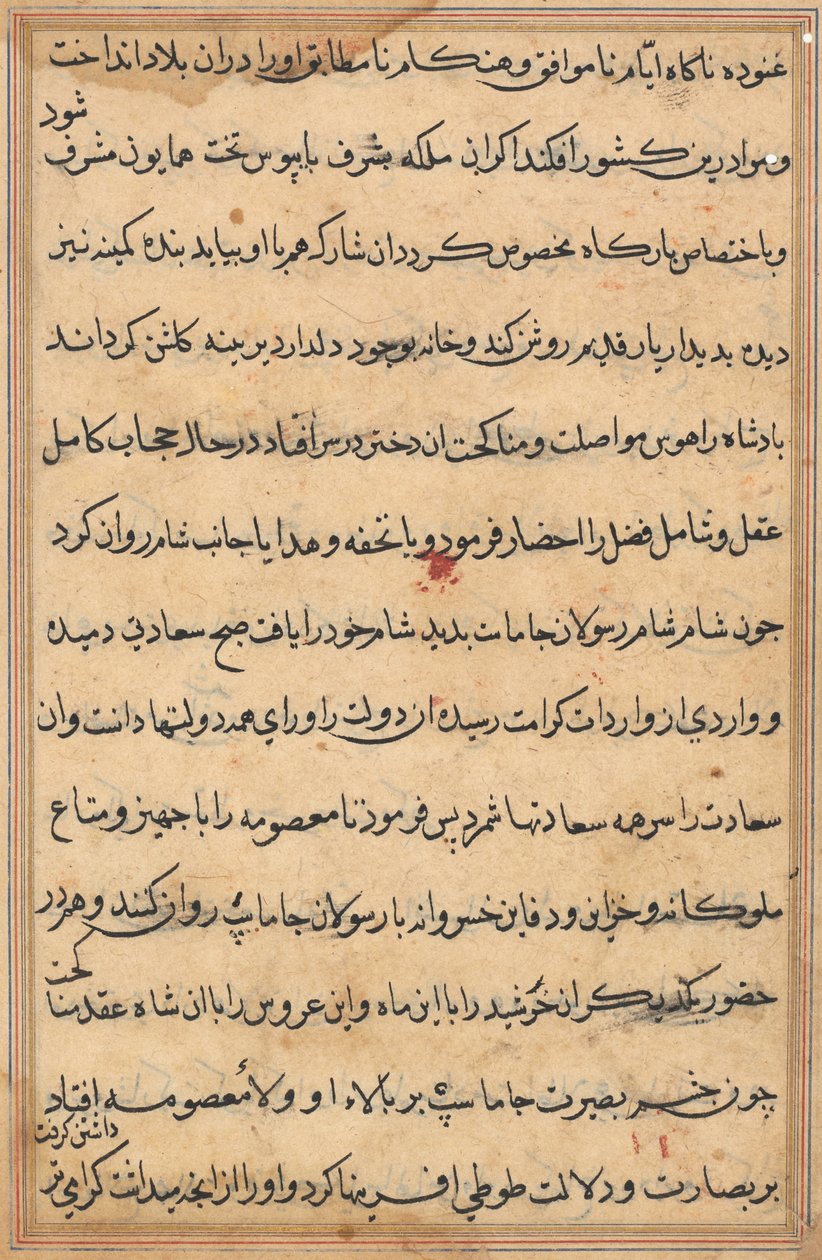 غنوده ناکاه ایّام ناموافق وهنکام نامطابق اورا دران بلاد انداخت
ومرا درین کشور افکند اکر ان ملکه بشرف بابپوس تخت همایون مشرف شود
وباختصاص بارکاه مخصوص کردد ان شارک هم با او بیاید بندهٔ کمینه نیز
دیده بدیدار یار قدیم روشن کند وخانه بوجود دلدار دیرینه کلشن کرداند
بادشاه را هوس مواصلت ومناکحت ان دختر در سر افتاد در حال حجاب کامل
عقل وشامل فضل را احضار فرمود و با تحفه و هدایا جانب شام روان کرد
جون شام شام رسولان جاماست بدید شام خود را یافت صبح سعادتی دمیده
و واردی از واردات کرامت رسیده ان دولت را ورای همه دولتها دانست وان
سعادت را سر همه سعادتها شمرد پس فرموذ تا معصومه را با جهیز و متاع
ملوکانه وخزاین ودفاین خسروانه با رسولان جاماسپ روان کنند وهم در
حضور یکدیکر ان خورشید را با این ماه واین عروس را با ان شاه عقد مناکحت
چون چشم بصیرت جاماسپ بر بالاء او و ولاء معصومه افتاد
بر بصارت ودلالت طوطی افرینها کرد و اورا از انجه میداشت کرامی تر داشتن کرفت